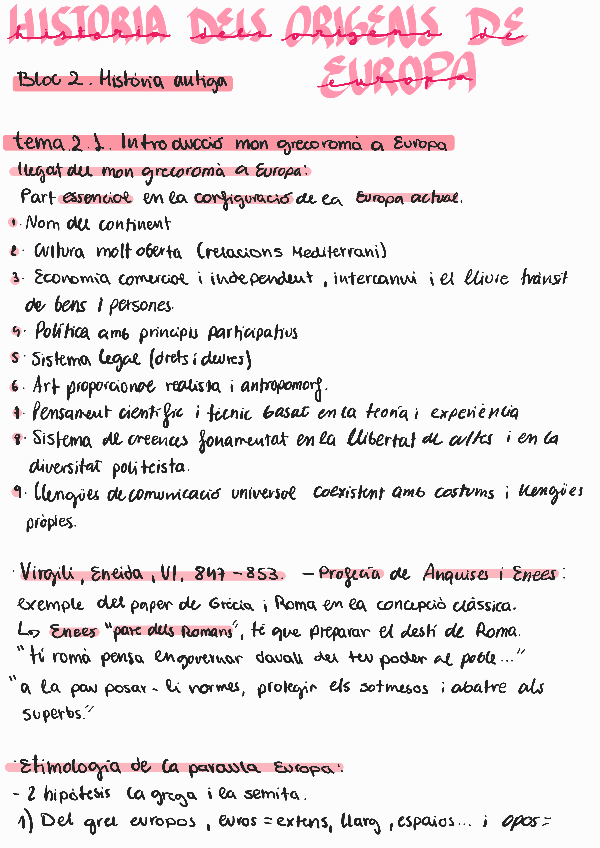 HISTORIA DELS ORIGENS DE
historia dels origens de
EUROPA
europa
Bloc 2. Història antiga
tema 2.1. Introducció mon grecoromà a Europa
llegat del mon grecoromà a Europa:
Part essencial en la configuració de la Europa actual.
1. Nom del continent
2. Cultura molt oberta (relacions Mediterrani)
3. Economia comercial i independent, intercanvi i el lliure trànsit
de bens i persones.
4. Política amb principis participatius
5. Sistema legal (drets i deures)
6. Art proporcional realista i antropomorf.
7. Pensament científic i tècnic basat en la teoria i experiència
8. Sistema de creences fonamentat en la llibertat de cultes i en la
diversitat politeista.
9. Llengües de comunicació universal coexistent amb costums i llengües
pròples.
· Virgili, Eneida, VI, 847-853. - Profecia de Anquises i Enees:
exemple del paper de Grècia i Roma en la concepció clàssica.
↳ Enees "pare dels Romans", té que preparar el destí de Roma.
"tú romà pensa en governar davall del teu poder al poble..."
"a la pau posar-li normes, protegir els sotmesos i abatre als
superbs."
· Etimologia de la paraula Europa:
- 2 hipòtesis la grega i la semita.
1) Del grec europos, euros = extens, llarg, espaios... i opos=